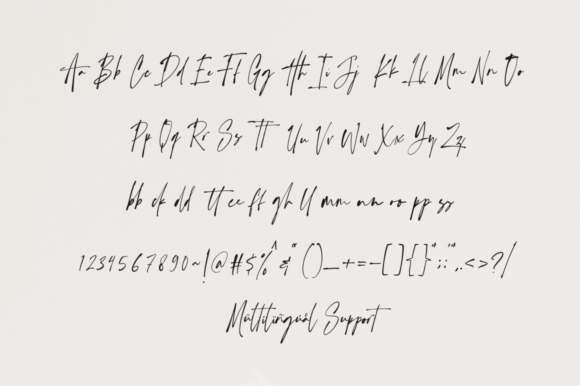 Aa Bb Cc Dd Ee Ff Gg Hh Ii Jj Kk Ll Mm Nn Oo
Pp Qq Rr Ss Tt Uu Vv Ww Xx Yy Zz
bb ck dd tt ee ff gh ll mm nn oo pp ss
1234567890~!@#$%^&*()_+=-[]{}":;'",.<>?/
Multilingual Support